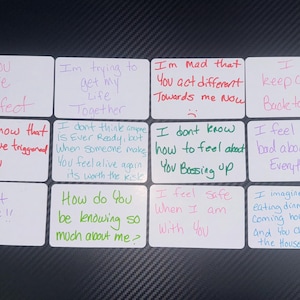 I'm trying to
get my
Life
Together
I'm mad that
You act different
Towards me Now
I
keep
Back
now that
triggered
I dont think anyone
is Ever Ready, but
when someone make
You feel alive again
its worth the Risk
I dont know
how to feel about
You Bossing up
I feel
bad abou
Every
!!
How do You
be knowing so
much about me?
I feel safe
when I am
with You
I imagin
eating dinn
coming ho
and You c
the House